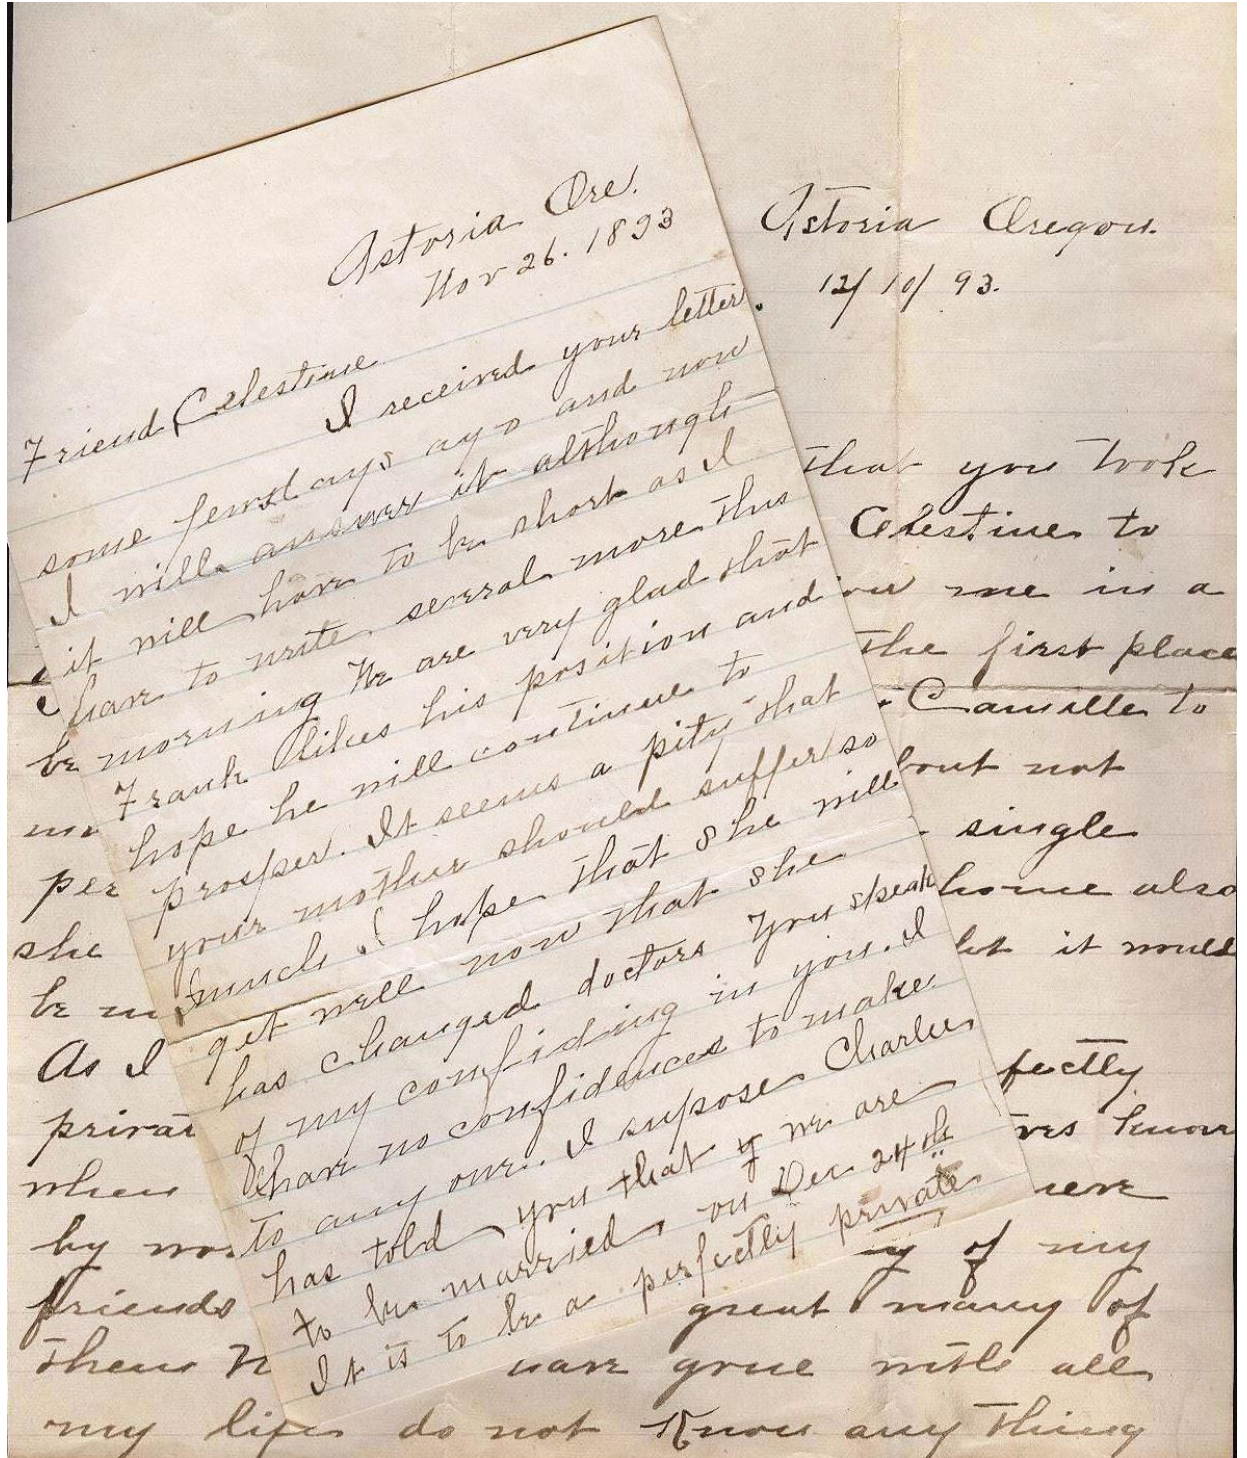 Astoria Ore.
Nov 26. 1893
Friend Celestine
I received your letter
some few days ago and now
I will answer it although
it will have to be short as I
have to write several more this
morning We are very glad that
Frank likes his position and
hope he will continue to
prosper. It seems a pity that
your mother should suffer so
much I hope that she will
get well now that she
has changed doctors You speak
of my confiding in you. I
have no confidences to make
to any one. I supose Charlie
has told you that we are
to be married, on Dec 24th
It is to be a perfectly private
Astoria Oregon.
12/10/93.
that you took
Celestine to
me in a
the first place
be Camille to
bout not
per single
she home also
be it would
As I
privat fectly
when ves know
by
friends y of my
great many of
them gone with all
my life do not Know any thing